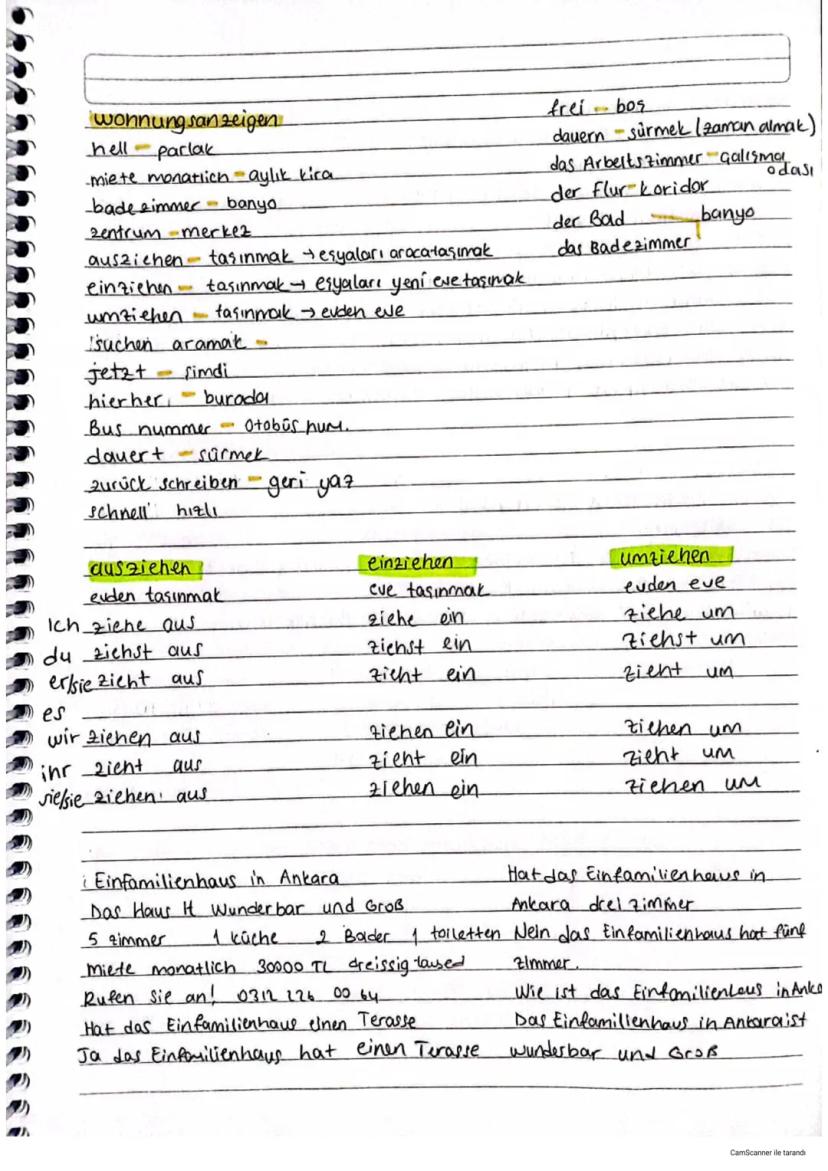 wohnungsanzeigen
hell - parlak
miete monatlich - aylık kira
badezimmer - banyo
zentrum - merkez
ausziehen - taşınmak → eşyaları araca taşımak
einziehen - taşınmak → eşyaları yeni eve taşımak
umziehen - taşınmak → evden eve
suchen aramak -
jetzt - şimdi
hierher - burada
Bus nummer - otobüs num.
dauert - sürmek
zurück schreiben - geri yaz
schnell hızlı
frei - boş
dauern - sürmek (zaman almak)
das Arbeitszimmer - çalışma odası
der Flur - koridor
der Bad banyo
das Badezimmer
ausziehen einziehen umziehen
evden taşınmak eve taşınmak evden eve
Ich ziehe aus ziehe ein ziehe um
du ziehst aus ziehst ein ziehst um
er/sie zieht aus zieht ein zieht um
es
wir ziehen aus ziehen ein ziehen um
ihr zieht aus zieht ein zieht um
sie/sie ziehen aus ziehen ein ziehen um
Einfamilienhaus in Ankara
Das Haus ist Wunderbar und Groß
5 zimmer 1 küche 2 Bader 1 toiletten
Miete monatlich 30000 TL dreissig taused
Rufen Sie an! 0312 226 00 64
Hat das Einfamilienhaus einen Terasse
Ja das Einfamilienhaus hat einen Terasse
Hat das Einfamilienhaus in
Ankara drei zimmer
Nein das Einfamilienhaus hat fünf
zimmer.
Wie ist das Einfamilienhaus in Anka
Das Einfamilienhaus in Ankara ist
wunderbar und Groß
CamScanner ile tarandı